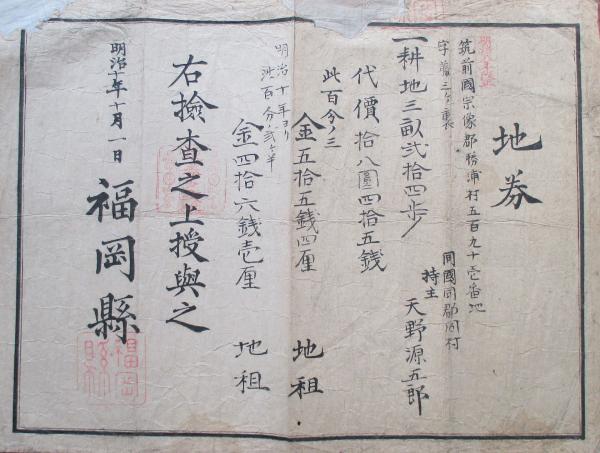 地券
筑前國宗像郡勝浦村五百九十壱番地
字
一耕地三畝弐十四歩
同國同郡同村
持主 天野源五郎
代價拾八圓四拾五錢
此百分ノ三
金五拾五錢四厘 地租
明治十年ヨリ
此百分ノ弐ヶ半
金四拾六錢壱厘 地租
右撿査之上授與之
明治十年十月一日
福岡縣
福岡縣